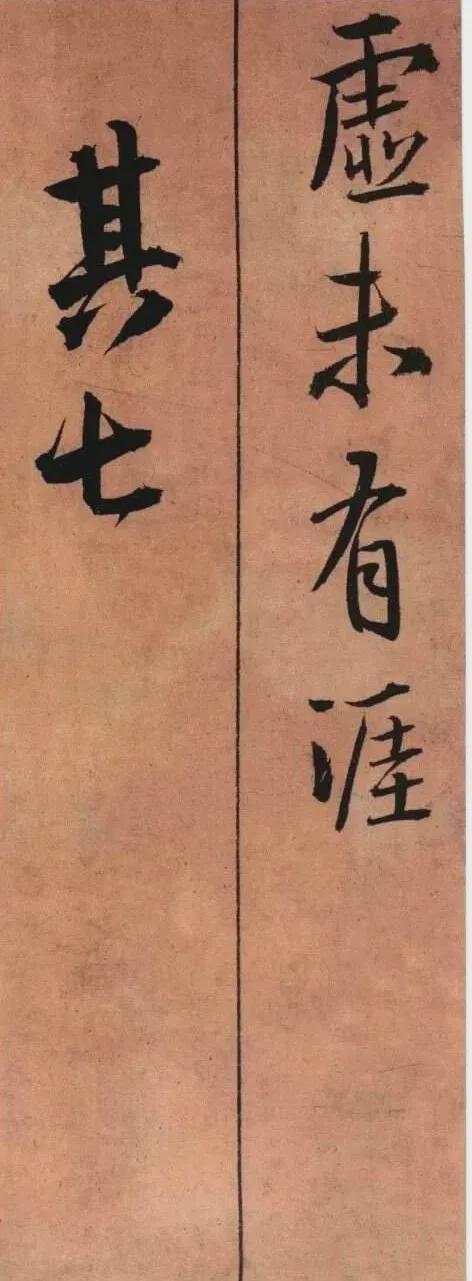 虚未有涯
其七